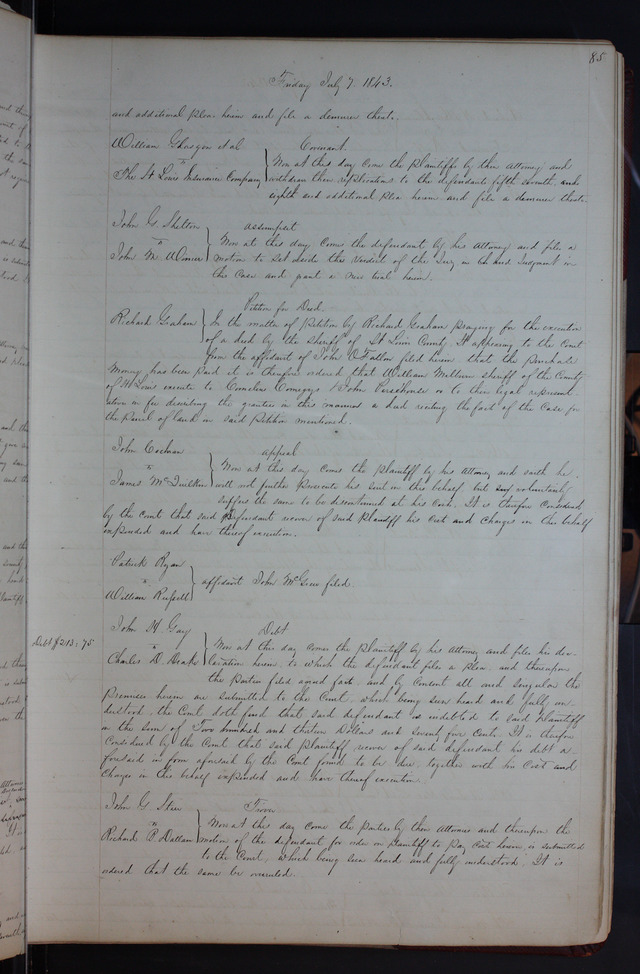 85
Friday July 7. 1843.
and additional plea herein and file a demurrer thereto.
William Glasgow et al Covenant
vs Now at this day come the plaintiffs by their Attorney and
The St Louis Insurance Company withdraw their replications to the defendants fifth seventh and
eighth and additional plea herein and file a demurrer thereto
John G. Shelton assumpsit
vs Now at this day comes the defendant by his Attorney and files a
John M. Wimer motion to set aside the verdict of the Jury and Judgment in
the case and grant a new trial herein.
Petition for Deed
Richard Graham In the matter of Petition by Richard Graham praying for the execution
of a deed by the sheriff of St Louis County. It appearing to the Court
from the affidavit of John O'Fallon filed herein that the purchase
Money has been paid it is therefore ordered that William Milburn sheriff of the County
of St Louis execute to Cornelius Comegys & John Pershouse or to their legal represent-
atives in fee describing the grantees in this manner a deed reciting the facts of the case for
the parcel of land in said Petition mentioned.
John Cochran appeal
vs Now at this day comes the plaintiff by his Attorney and saith he
James McQuilkin will not further prosecute his suit in this behalf but voluntarily
suffers the same to be discontinued at his cost. It is therefore Considered
by the Court that said defendant recover of said plaintiff his cost and charges in this behalf
expended and have thereof execution.
Patrick Ryan
vs affidavit John McGrew filed
William Russell
John H. Gay Debt
Debt $213,75
vs Now at this day comes the plaintiff by his Attorney and files his dec-
Charles D. Drake laration herein, to which the defendant files a plea, and thereupon
the parties filed agreed facts and by consent all and singular the
premises herein are submitted to the Court, which being seen heard and fully un-
derstood, the Court doth find that said defendant is indebted to said Plaintiff
in the sum of Two hundred and thirteen Dollars and seventy five Cents. It is therefore
Considered by the Court that said plaintiff recover of said defendant his debt a-
foresaid in form aforesaid by the Court found to be due, together with his Cost and
Charges in this behalf expended and have thereof execution.
John G. Stew Trover
vs Now at this day come the parties by their Attornies and thereupon the
Richard P. Dallam motion of the defendant for order on plaintiff to pay cost herein is submitted
to the Court, which being seen heard and fully understood, It is
ordered that the same be overruled.